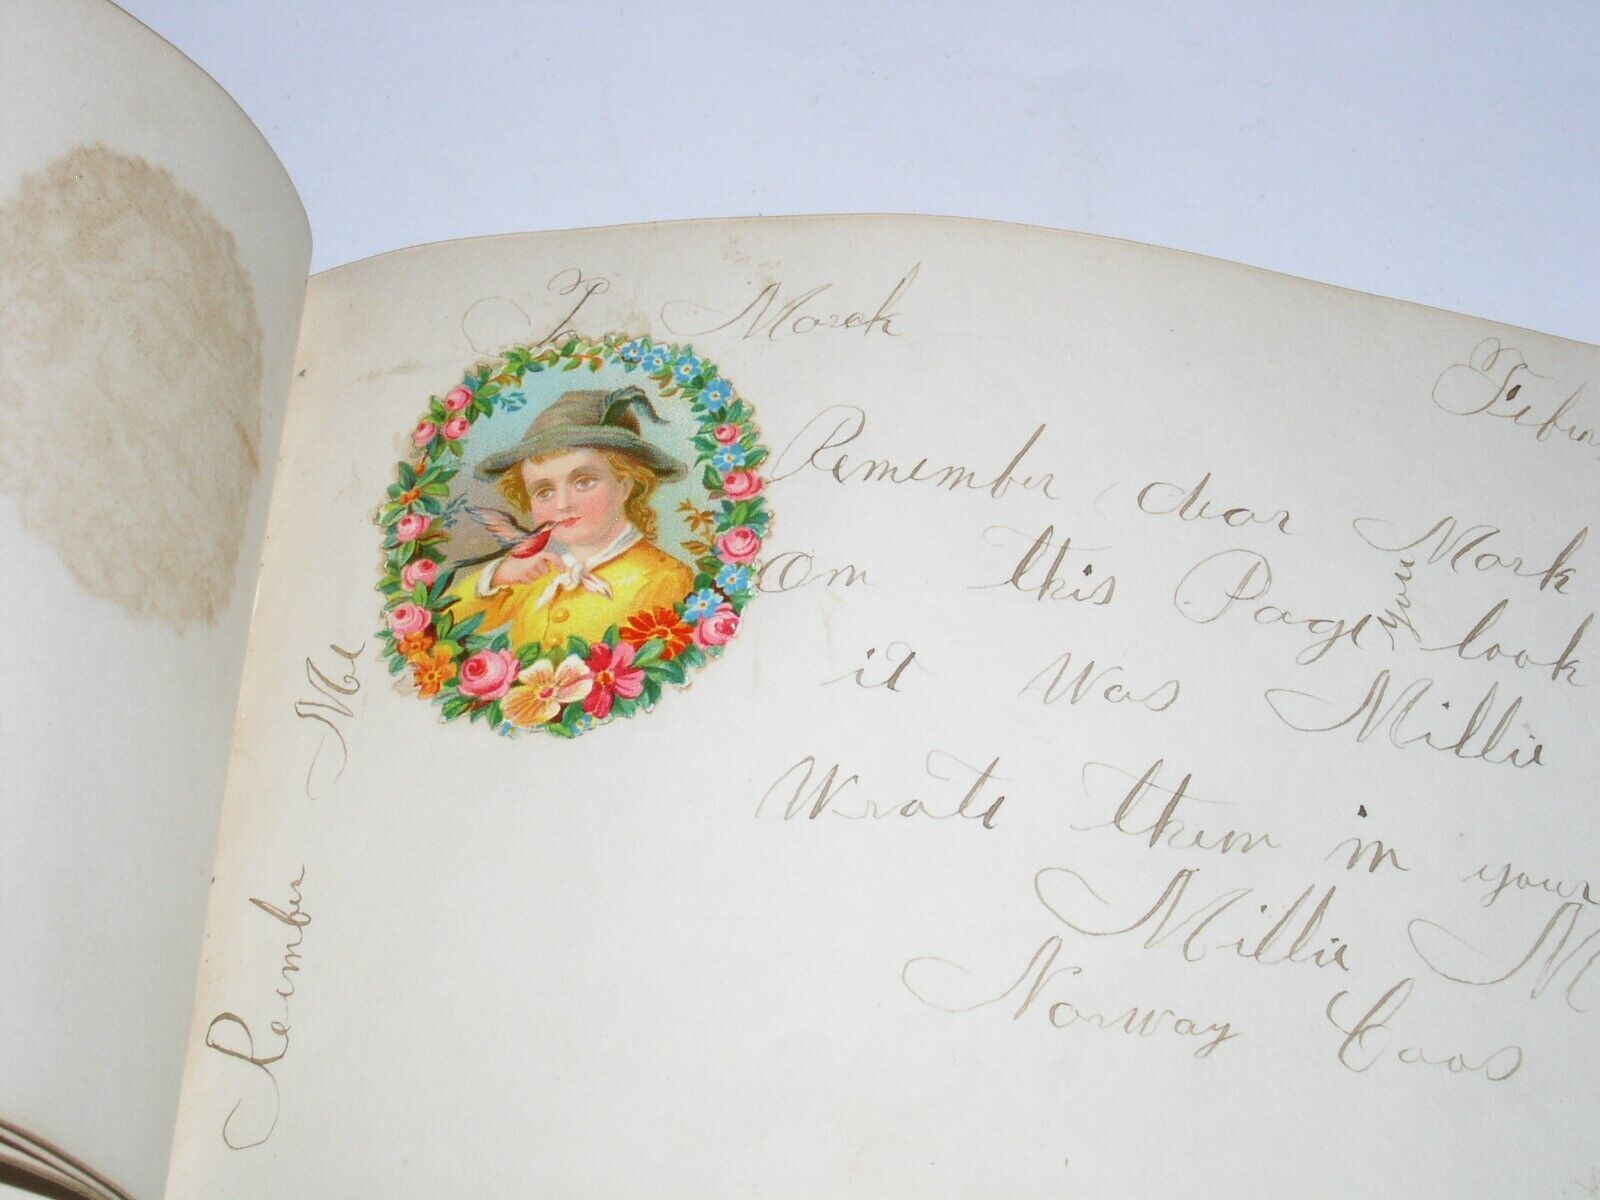 To Mark
Febru
Remember dear Mark
On this Page you look
it was Millie
Wrote them in your
Millie M
Norway Coos
Remember Me